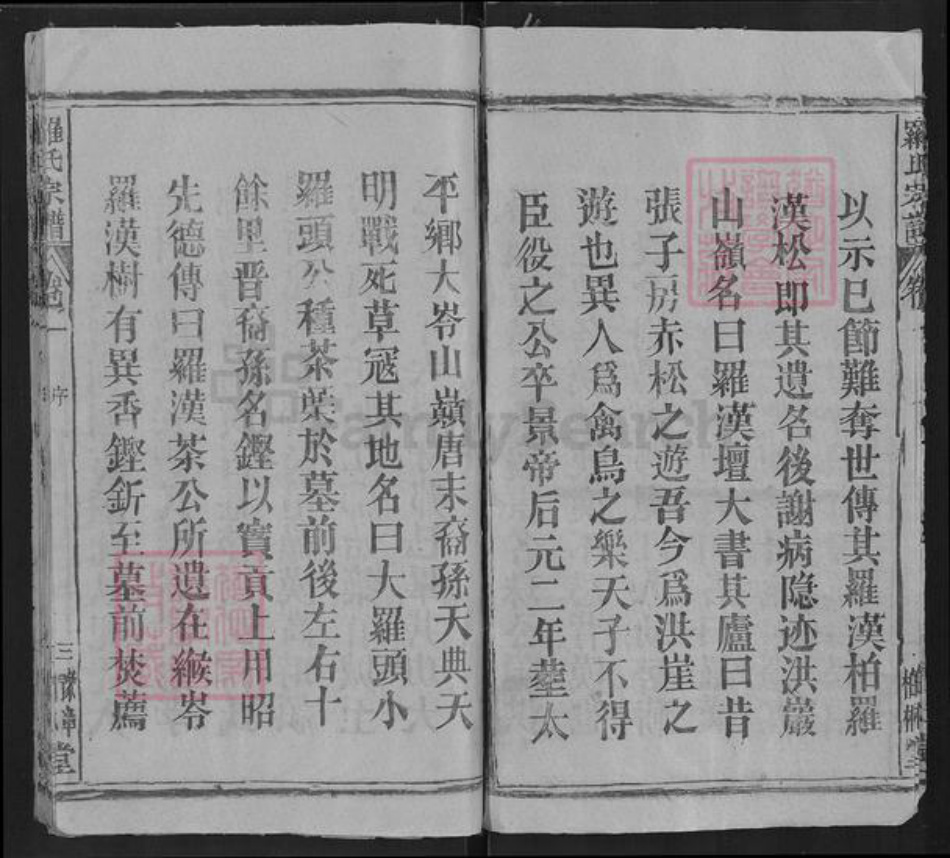 以示已節難奪世傳其羅漢柏羅
漢松即其遺名後謝病隐迹洪巖
山嶺名曰羅漢壇大書其廬曰昔
張子房赤松之遊吾今爲洪崖之
遊也異人爲禽鳥之樂天子不得
臣役之公卒景帝后元二年塟太
平鄉大岺山巔唐末裔孫天典天
明戰死草冦其地名曰大羅頭小
羅頭公種茶葉於墓前後左右十
餘里晋裔孫名鏗以實貢上用昭
先德傳曰羅漢茶公所遺在緱岺
羅漢樹有異香鏗釿至墓前焚薦
羅氏宗譜
卷一
序
三
豫章堂
羅氏宗譜
卷
堂
FamilySearch